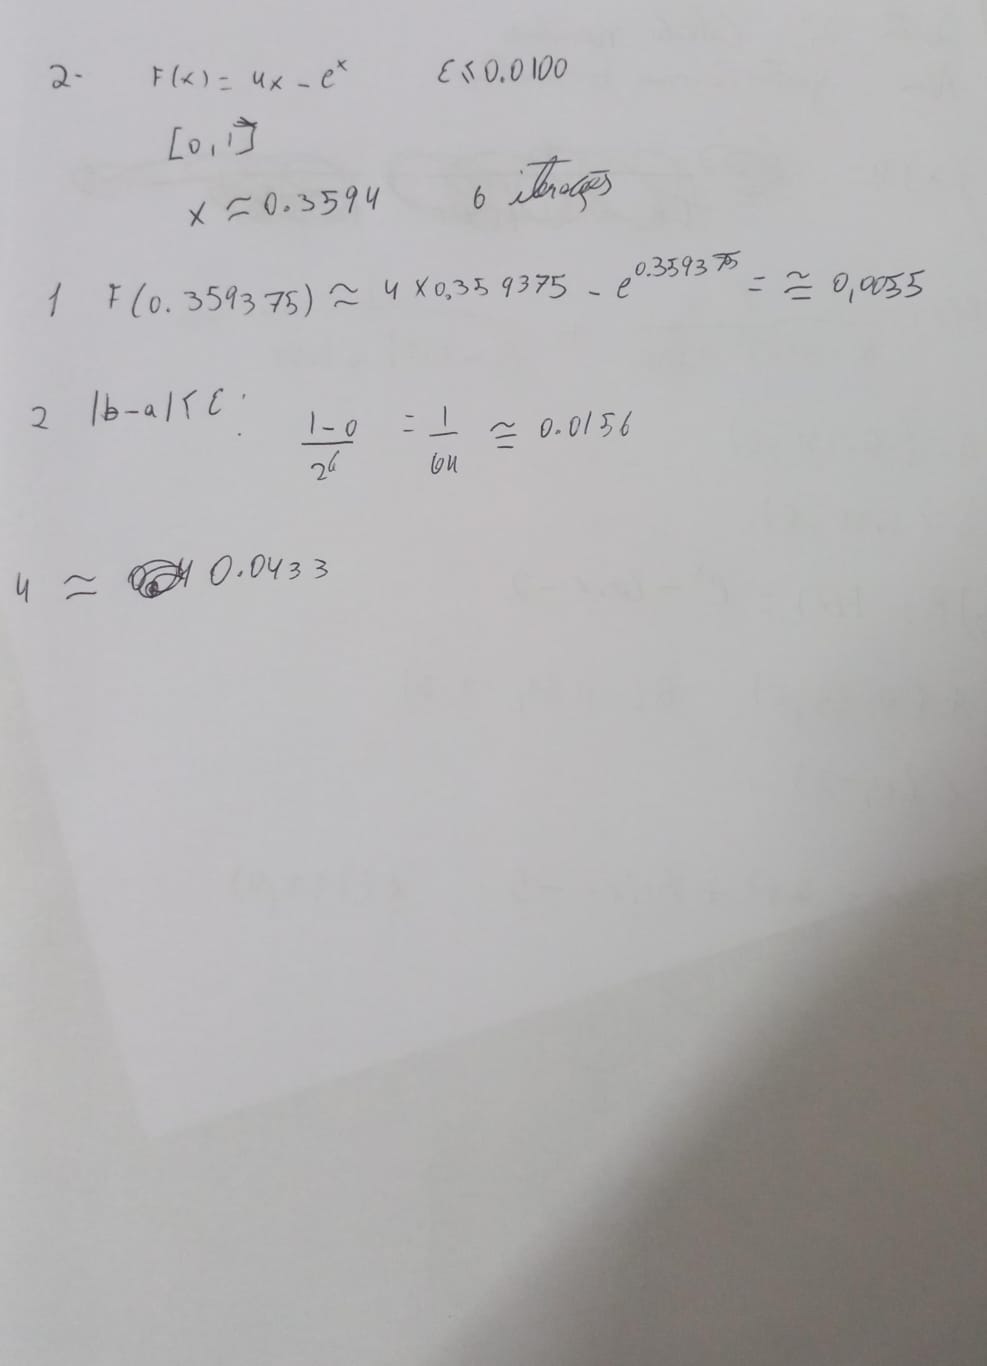 2- F(x) = 4x - e^x ε ≤ 0.0100
[0, 1]
x ≈ 0.3594 6 iterações
1 F(0.359375) ≈ 4 x 0,359375 - e^0.359375 = ≅ 0,0055
2 |b-a| < ε: (1-0)/2^6 = 1/64 ≅ 0.0156
4 ≈ 0.0433